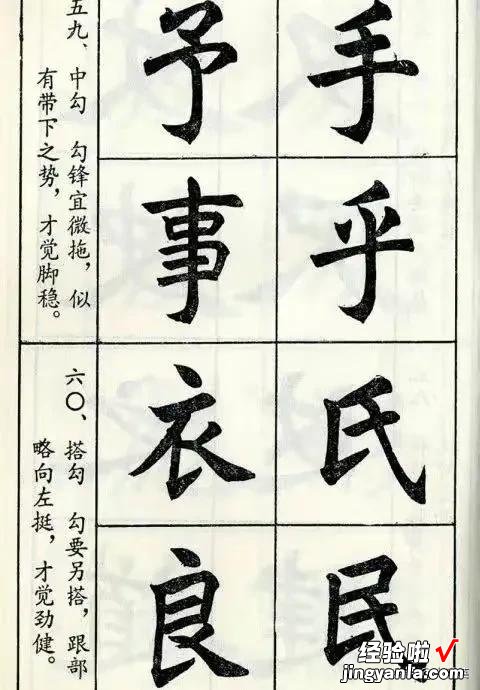 手乎氏民
予事衣良
五九、中勾 勾锋宜微拖，似
有带下之势，才觉脚稳。
六〇、搭勾 勾要另搭，跟部
略向左挺，才觉劲健。
经验啦√
jingyanla.com